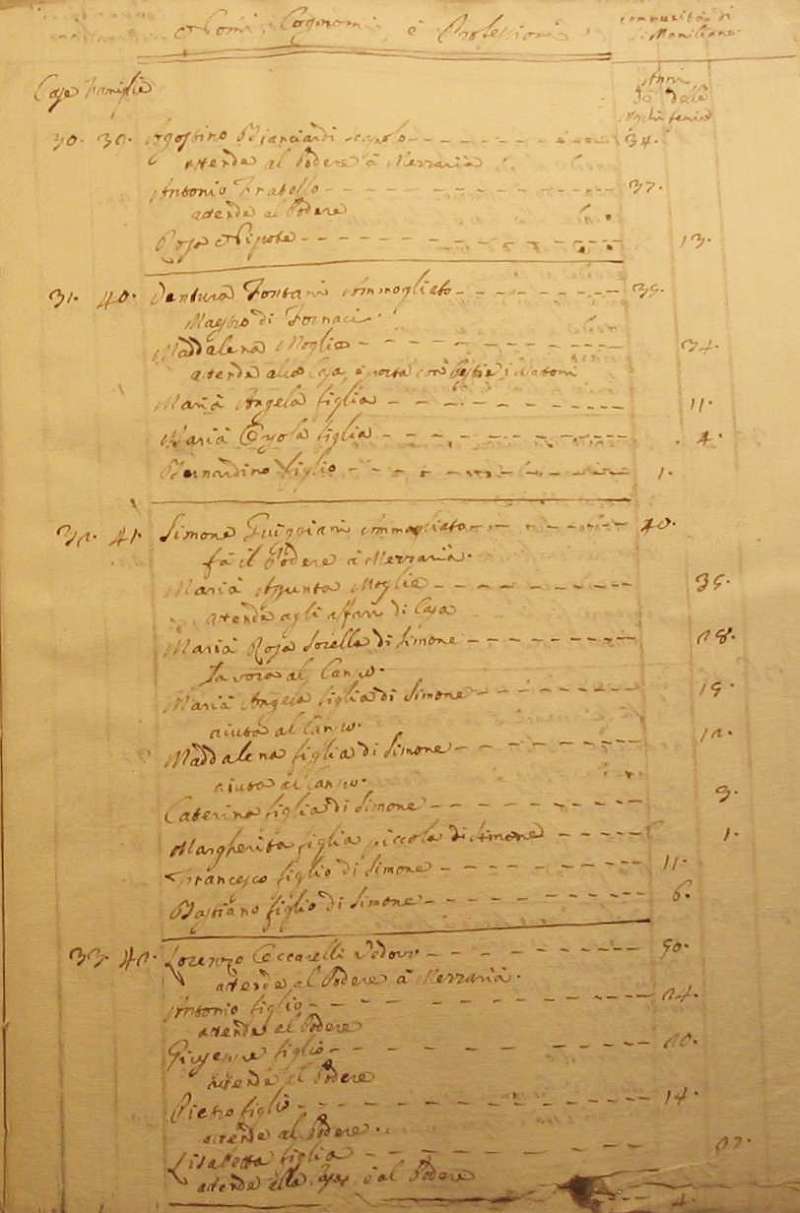 Nomi, Cognomi e Professioni Comunità di S. Maniliano
Case Famiglie Anni
30. 39. Agostino Bianciardi scapolo 34.
attende al Podere à Mezzaria
Antonio Fratello 37.
attende al Podere
Rosa Nipote 13.
31. 40. Ventura Fontani Ammogliato 39.
Maestro di Fornaci
Maddalena Moglie 34.
attende alla Casa, e porta con bestie i
Maria Angela figlia 11.
Maria figlia 4.
Bernardino figlio 1.
32. 41. Simone Guiggiani Ammogliato 40.
fà il Podere à Mezzaria.
Maria Assunta Moglie 39.
Attende agli affari di Casa
Maria Rosa Sorella di Simone 28.
Lavora al
Maria Angela figlia di Simone 19.
aiuta al
Maddalena figlia di Simone 12.
aiuta al
Caterina figlia di Simone 3.
Margherita figlia piccola di Simone 1.
Francesco figlio di Simone 11.
Bastiano figlio di Simone 6.
33. 42. Lorenzo Ceccarelli Vedovo 50.
attende al Podere à Mezzaria.
Antonio figlio 24.
attende al Podere
Giuseppe figlio 20.
attende al Podere
Pietro figlio 14.
attende al Podere.
Lisabetta figlia 22.
attende alla Casa e al Podere
4.